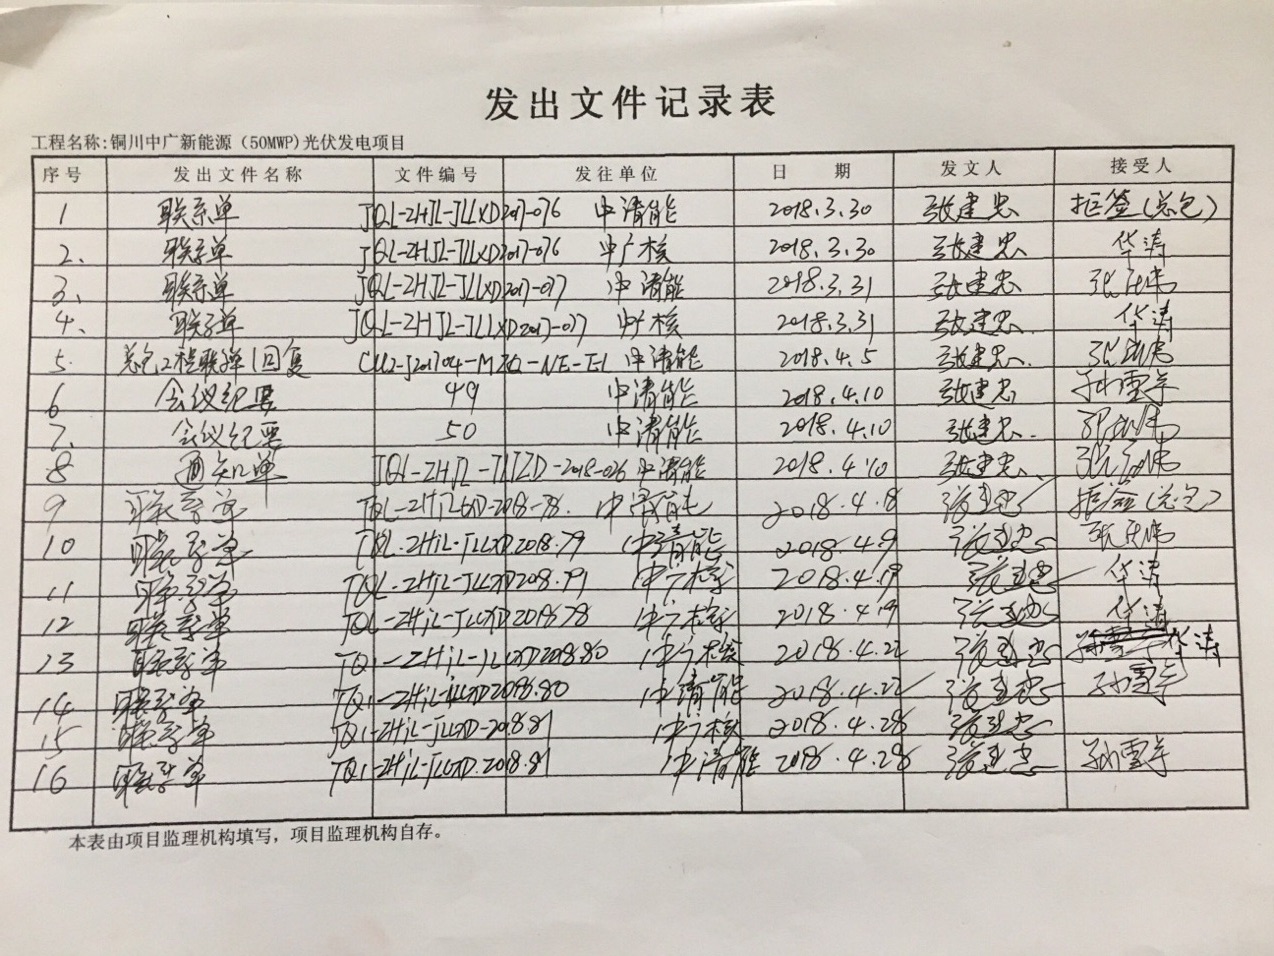 发出文件记录表
工程名称:铜川中广新能源（50MWP)光伏发电项目
序号 发出文件名称 文件编号 发往单位 日 期 发文人 接受人
1 联系单 JQL-ZHJL-JLLXD2017-076 中清能 2018.3.30 张建忠 拒签(总包)
2、 联系单 JQL-ZHJL-JLLXD2017-076 中广核 2018.3.30 张建忠 华涛
3、 联系单 JQL-ZHJL-JLLXD2017-077 中清能 2018.3.31 张建忠
4、 联系单 JQL-ZHJL-JLLXD2017-077 中广核 2018.3.31 张建忠. 华涛
5. 总包工程联系单回复 中清能 2018.4.5 张建忠.
6 会议纪要 49 中清能 2018.4.10 张建忠 孙雪军
7、 会议纪要 50 中清能 2018.4.10 张建忠.
8 通知单 JQL-ZHJL-JLTZD-2018-026 中清能 2018.4.10 张建忠
9 联系单 中清能 2018.4.8 张建忠 拒签(总包)
10 联系单 JQL-ZHJL-JLLXD2018.79 中清能 2018.4.9 张建忠
11 联系单 JQL-ZHJL-JLLXD2018.791 中广核 2018.4.19 张建忠 华涛
12 联系单 JQL-ZHJL-JLLXD2018.78 中广核 2018.4.19 张建忠 华涛
13 联系单 JQL-ZHJL-JLLXD2018.80 中广核 2018.4.22 张建忠 华涛
14 联系单 JQL-ZHJL-JLLXD2018.80 中清能 2018.4.22 张建忠 孙雪军
15 联系单 JQL-ZHJL-JLLXD-2018.81 中广核 2018.4.28 张建忠
16 联系单 JQL-ZHJL-JLLXD.2018.81 中清能 2018.4.28 张建忠 孙雪军
本表由项目监理机构填写，项目监理机构自存。